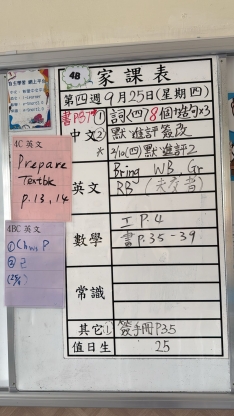 自主學習 網上平台
4B
家課表
第四週 9月25日(星期四)
書P37 ① 詞(四)8個造句×3
中文 ② 默進評簽改
* 2/10(四)默進評2
英文
Bring WB, Gr
RB
數學
工P.4
書P.35-39
常識
其它 ① 簽手冊P.35
值日生 25
4C 英文
Prepare
Textbk
p.13,14
4BC 英文